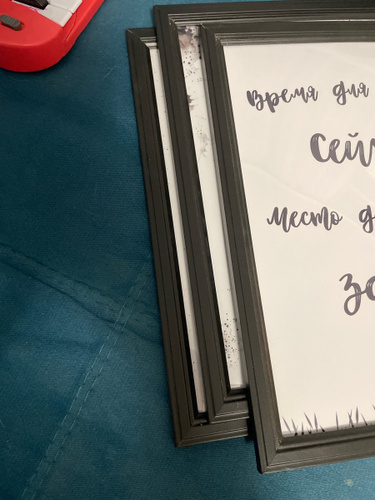 Время для
Сей
место